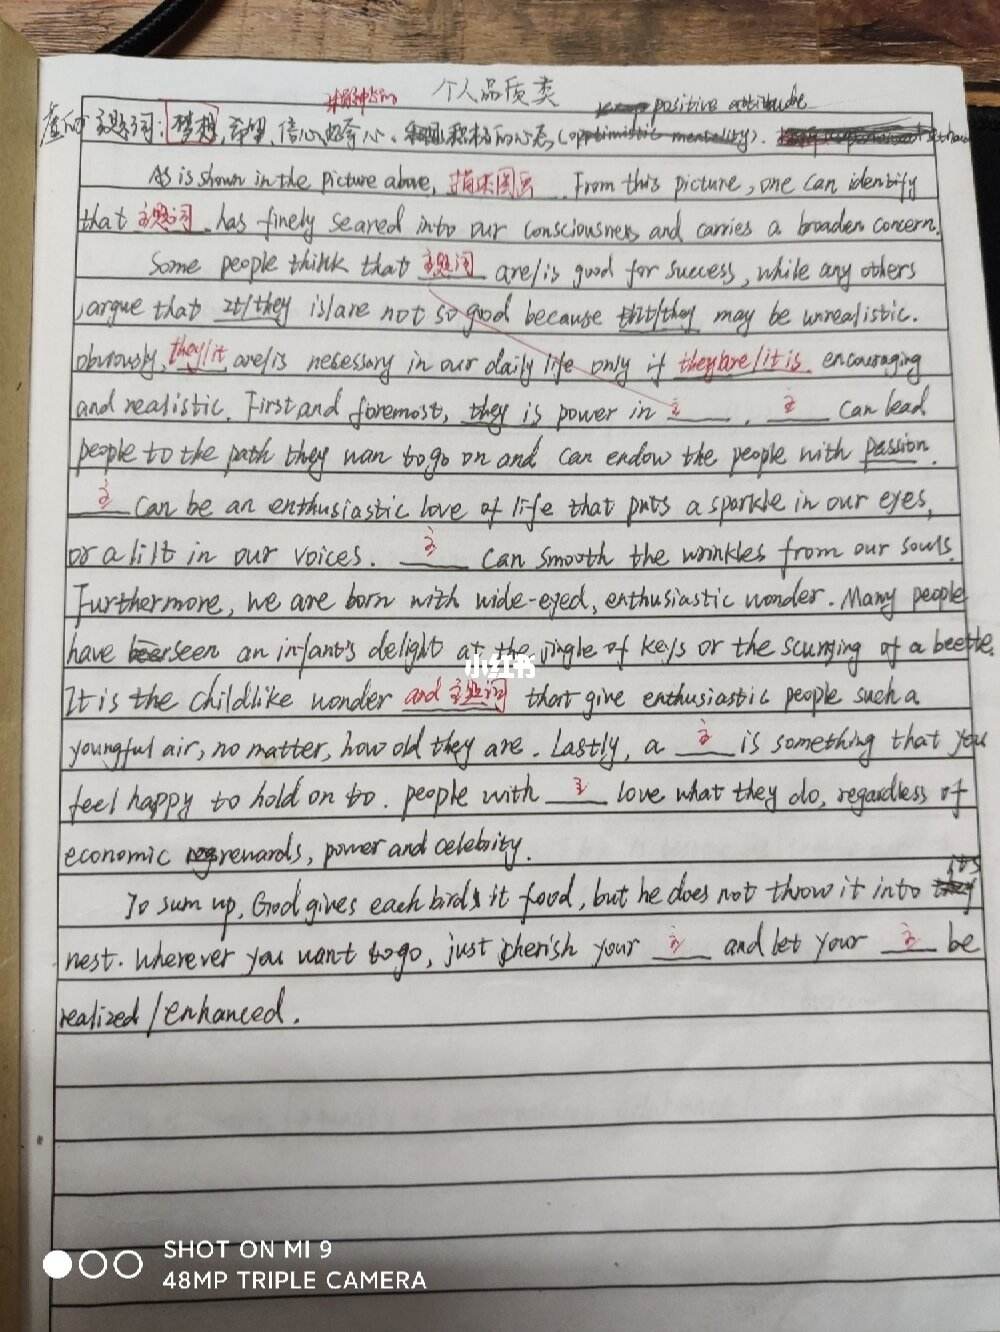 个人品质类
精神上的
positive attitude
主题词：梦想，希望，信心，好奇心、积极的心态(optimistic mentality).
As is shown in the picture above, 描述图画. From this picture, one can identify
that 主题词 has finely seared into our consciousness and carries a broaden concern.
Some people think that 主题词 are/is good for success, while any others
,argue that It/they is/are not so good because it/they may be unrealistic.
obviously, they/it are/is necessary in our daily life only if they are/it is encouraging
and realistic. First and foremost, they is power in 主. 主 can lead
people to the path they wan to go on and can endow the people with passion.
主 can be an enthusiastic love of life that puts a sparkle in our eyes,
or a lilt in our voices. 主 can smooth the wrinkles from our souls.
Furthermore, we are born with wide-eyed, enthusiastic wonder. Many people
have seen an infant's delight at the jingle of keys or the scurrying of a beetle.
It is the childlike wonder and 主题词 that give enthusiastic people such a
youngful air, no matter, how old they are. Lastly, a 主 is something that you
feel happy to hold on to. people with 主 love what they do, regardless of
economic rewards, power and celebrity.
To sum up, God gives each birds it food, but he does not throw it into its
nest. Wherever you want to go, just cherish your 主 and let your 主 be
realized/enhanced.
小红书
SHOT ON MI 9
48MP TRIPLE CAMERA